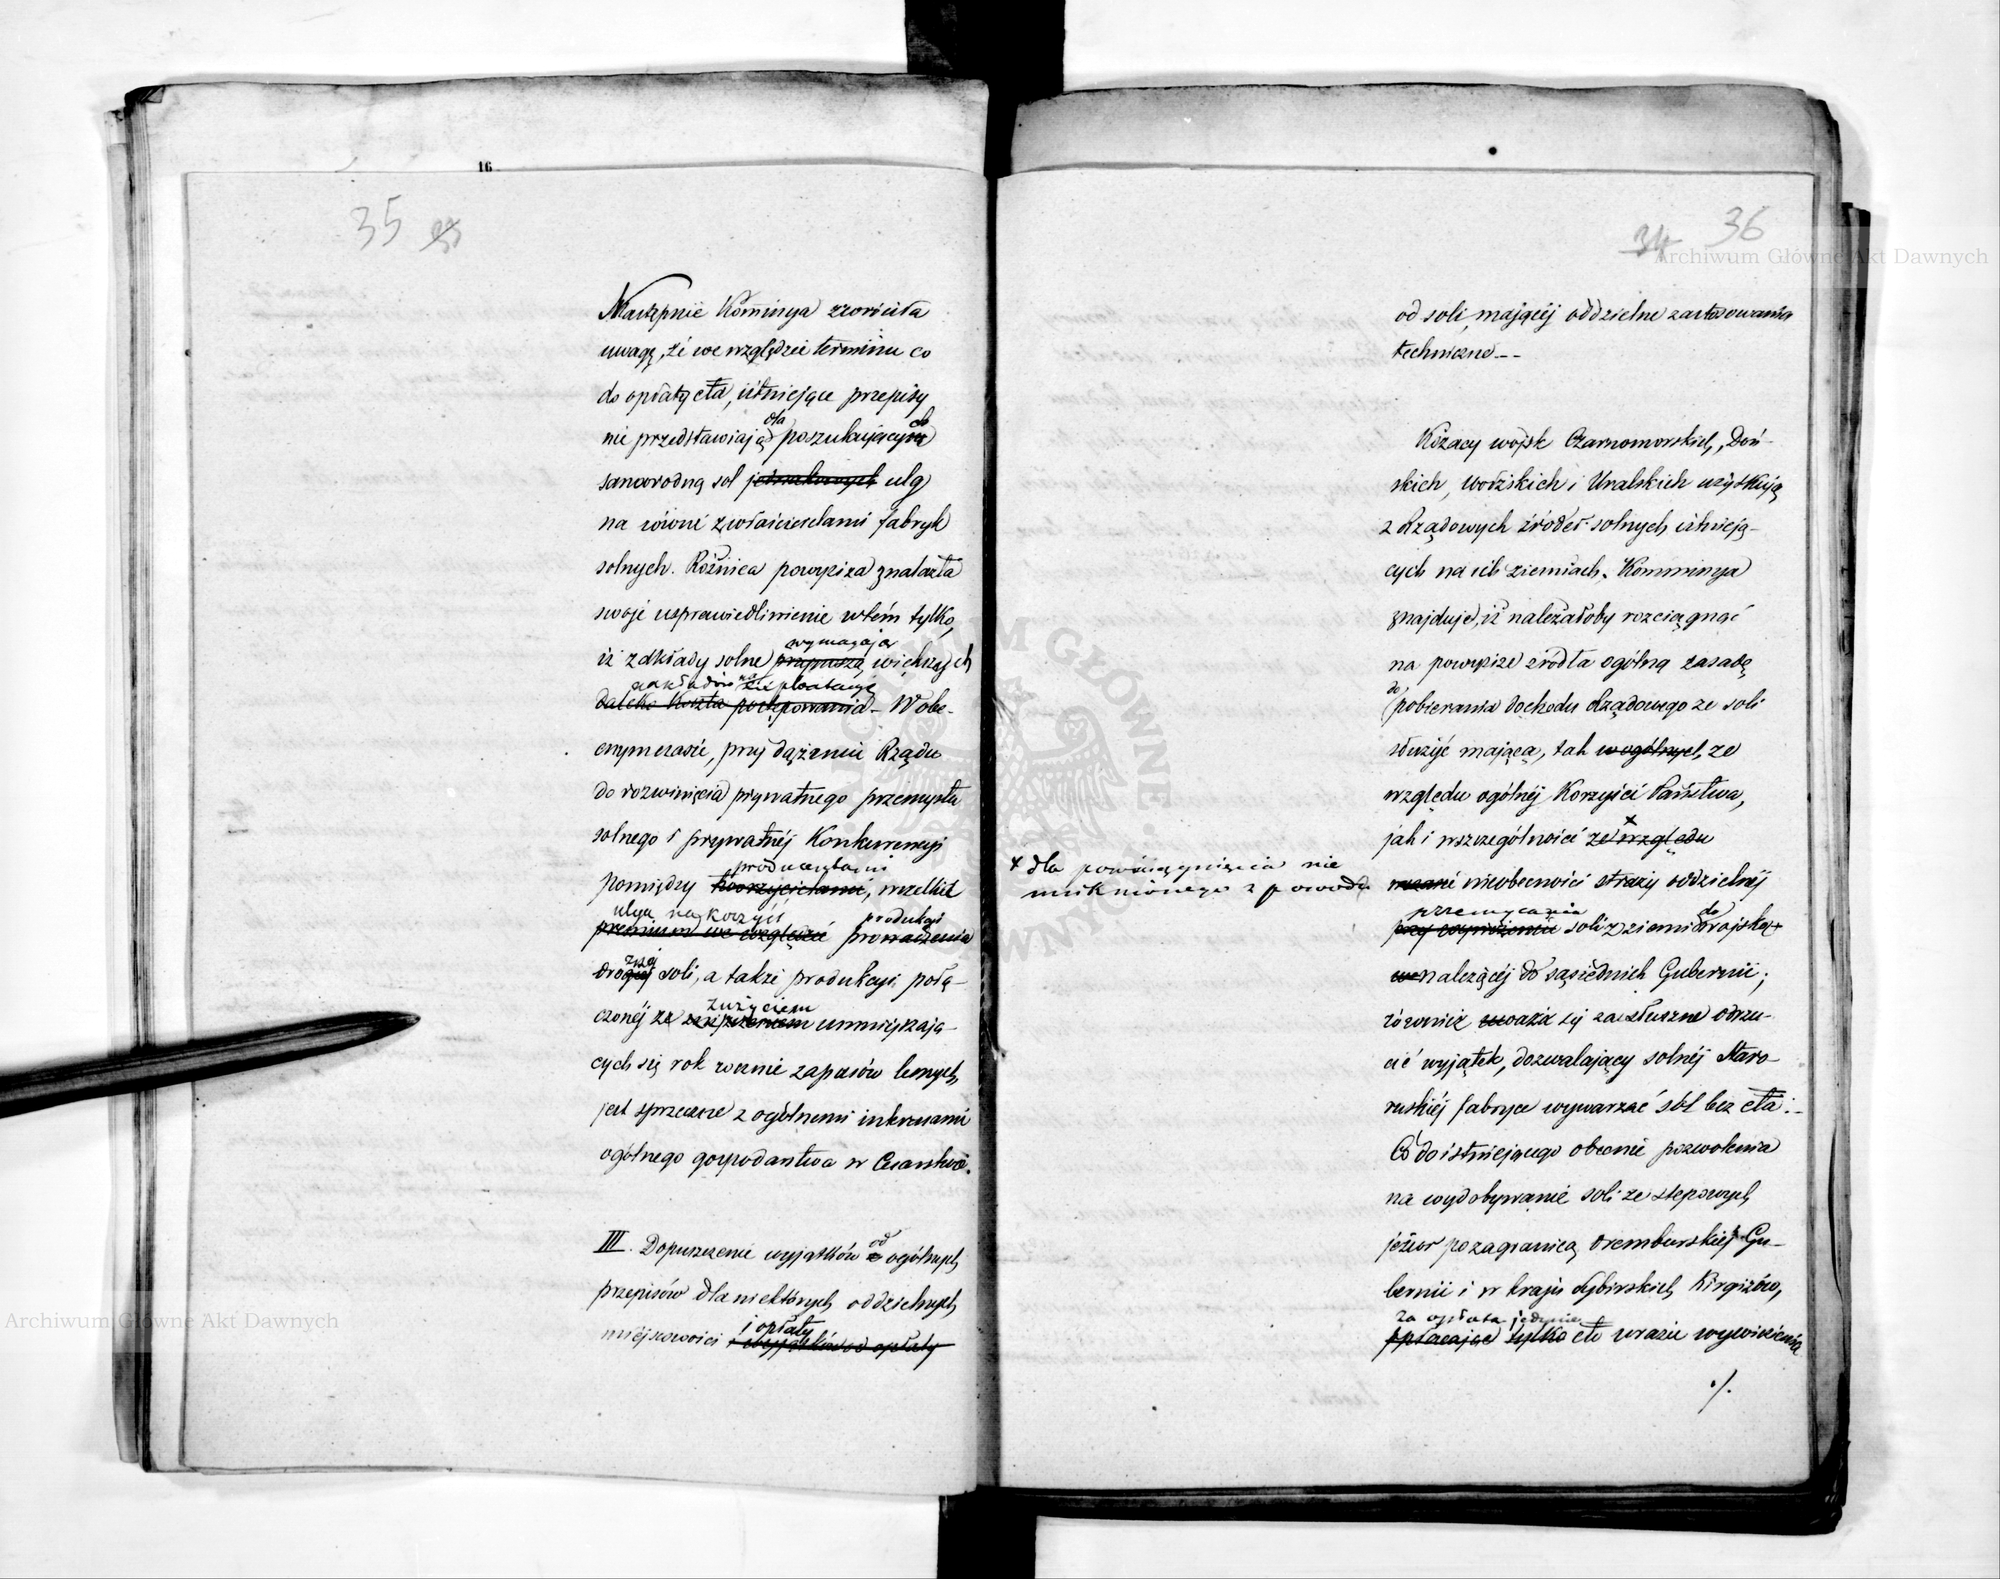 16
35
Następnie Kommisya zwróciła
uwagę, że we względzie terminu co
do opłaty cła, istniejące przepisy
dla ch
nie przedstawiają poszukującym
samorodną sól ulg
na równi z właścicielami fabryk
solnych. Różnica powyższa znalazła
swoje usprawiedliwienie w tém tylko,
wymagają
iż zakłady solne większych
nakładów na exploatacyę
daleko koszta postępowania. W obe-
cnym czasie, przy dążeniu Rządu
do rozwinięcia prywatnego przemysłu
solnego i prywatnéj Konkurencyi
producentami
pomiędzy wszelkie
ulgi na korzyść produkcyi
premium we względzie prowadzenia
drogiéj soli, a także produkcyi połą-
zużyciem
czonéj ze zniszczeniem zmniejszają-
cych się rok rocznie zapasów leśnych,
jest sprzeczne z ogólnemi interesami
ogólnego gospodarstwa w Cesarstwie.
od
III. Dopuszczenie wyjątków ogólnych
przepisów dla niektórych oddzielnych
i opłaty
miejscowości i wyjątków od opłaty
34 36
od soli, mającéj oddzielne zastosowania
techniczne--
Kozacy wojsk Czarnomorskich, Doń-
skich, i Uralskich uzyskują
z Rządowych źródeł solnych istnieją-
cych na ich ziemiach. Kommisya
znajduje, iż należałoby rozciągnąć
na powyższe źródła ogólną zasadę
do
pobierania dochodu Rządowego ze soli
służyć mającą, tak w ogólnych, ze
względu ogólnéj Korzyści Państwa,
x
jak i w szczególności ze względu
x dla powściągnięcia nie
uniknionego z powodu
nieobecności straży oddzielnéj
przemycania do
soli z ziemi wojskow
należącéj do sąsiednich Gubernii;
również uważa się za słuszne odrzu-
cić wyjątek, dozwalający solnéj Staro-
ruskiéj fabryce wywarzać sól bez cła.
Co do istniejącego obecnie pozwolenia
na wydobywanie soli ze stepowych
jezior poza granicą Oremburskiéj Gu-
bernii i w kraju Sybirskich Kirgizów,
za opłatą jedynie
opłacając tylko cło w razie wywiezienia
./.
Archiwum Główne Akt Dawnych
Archiwum Główne Akt Dawnych